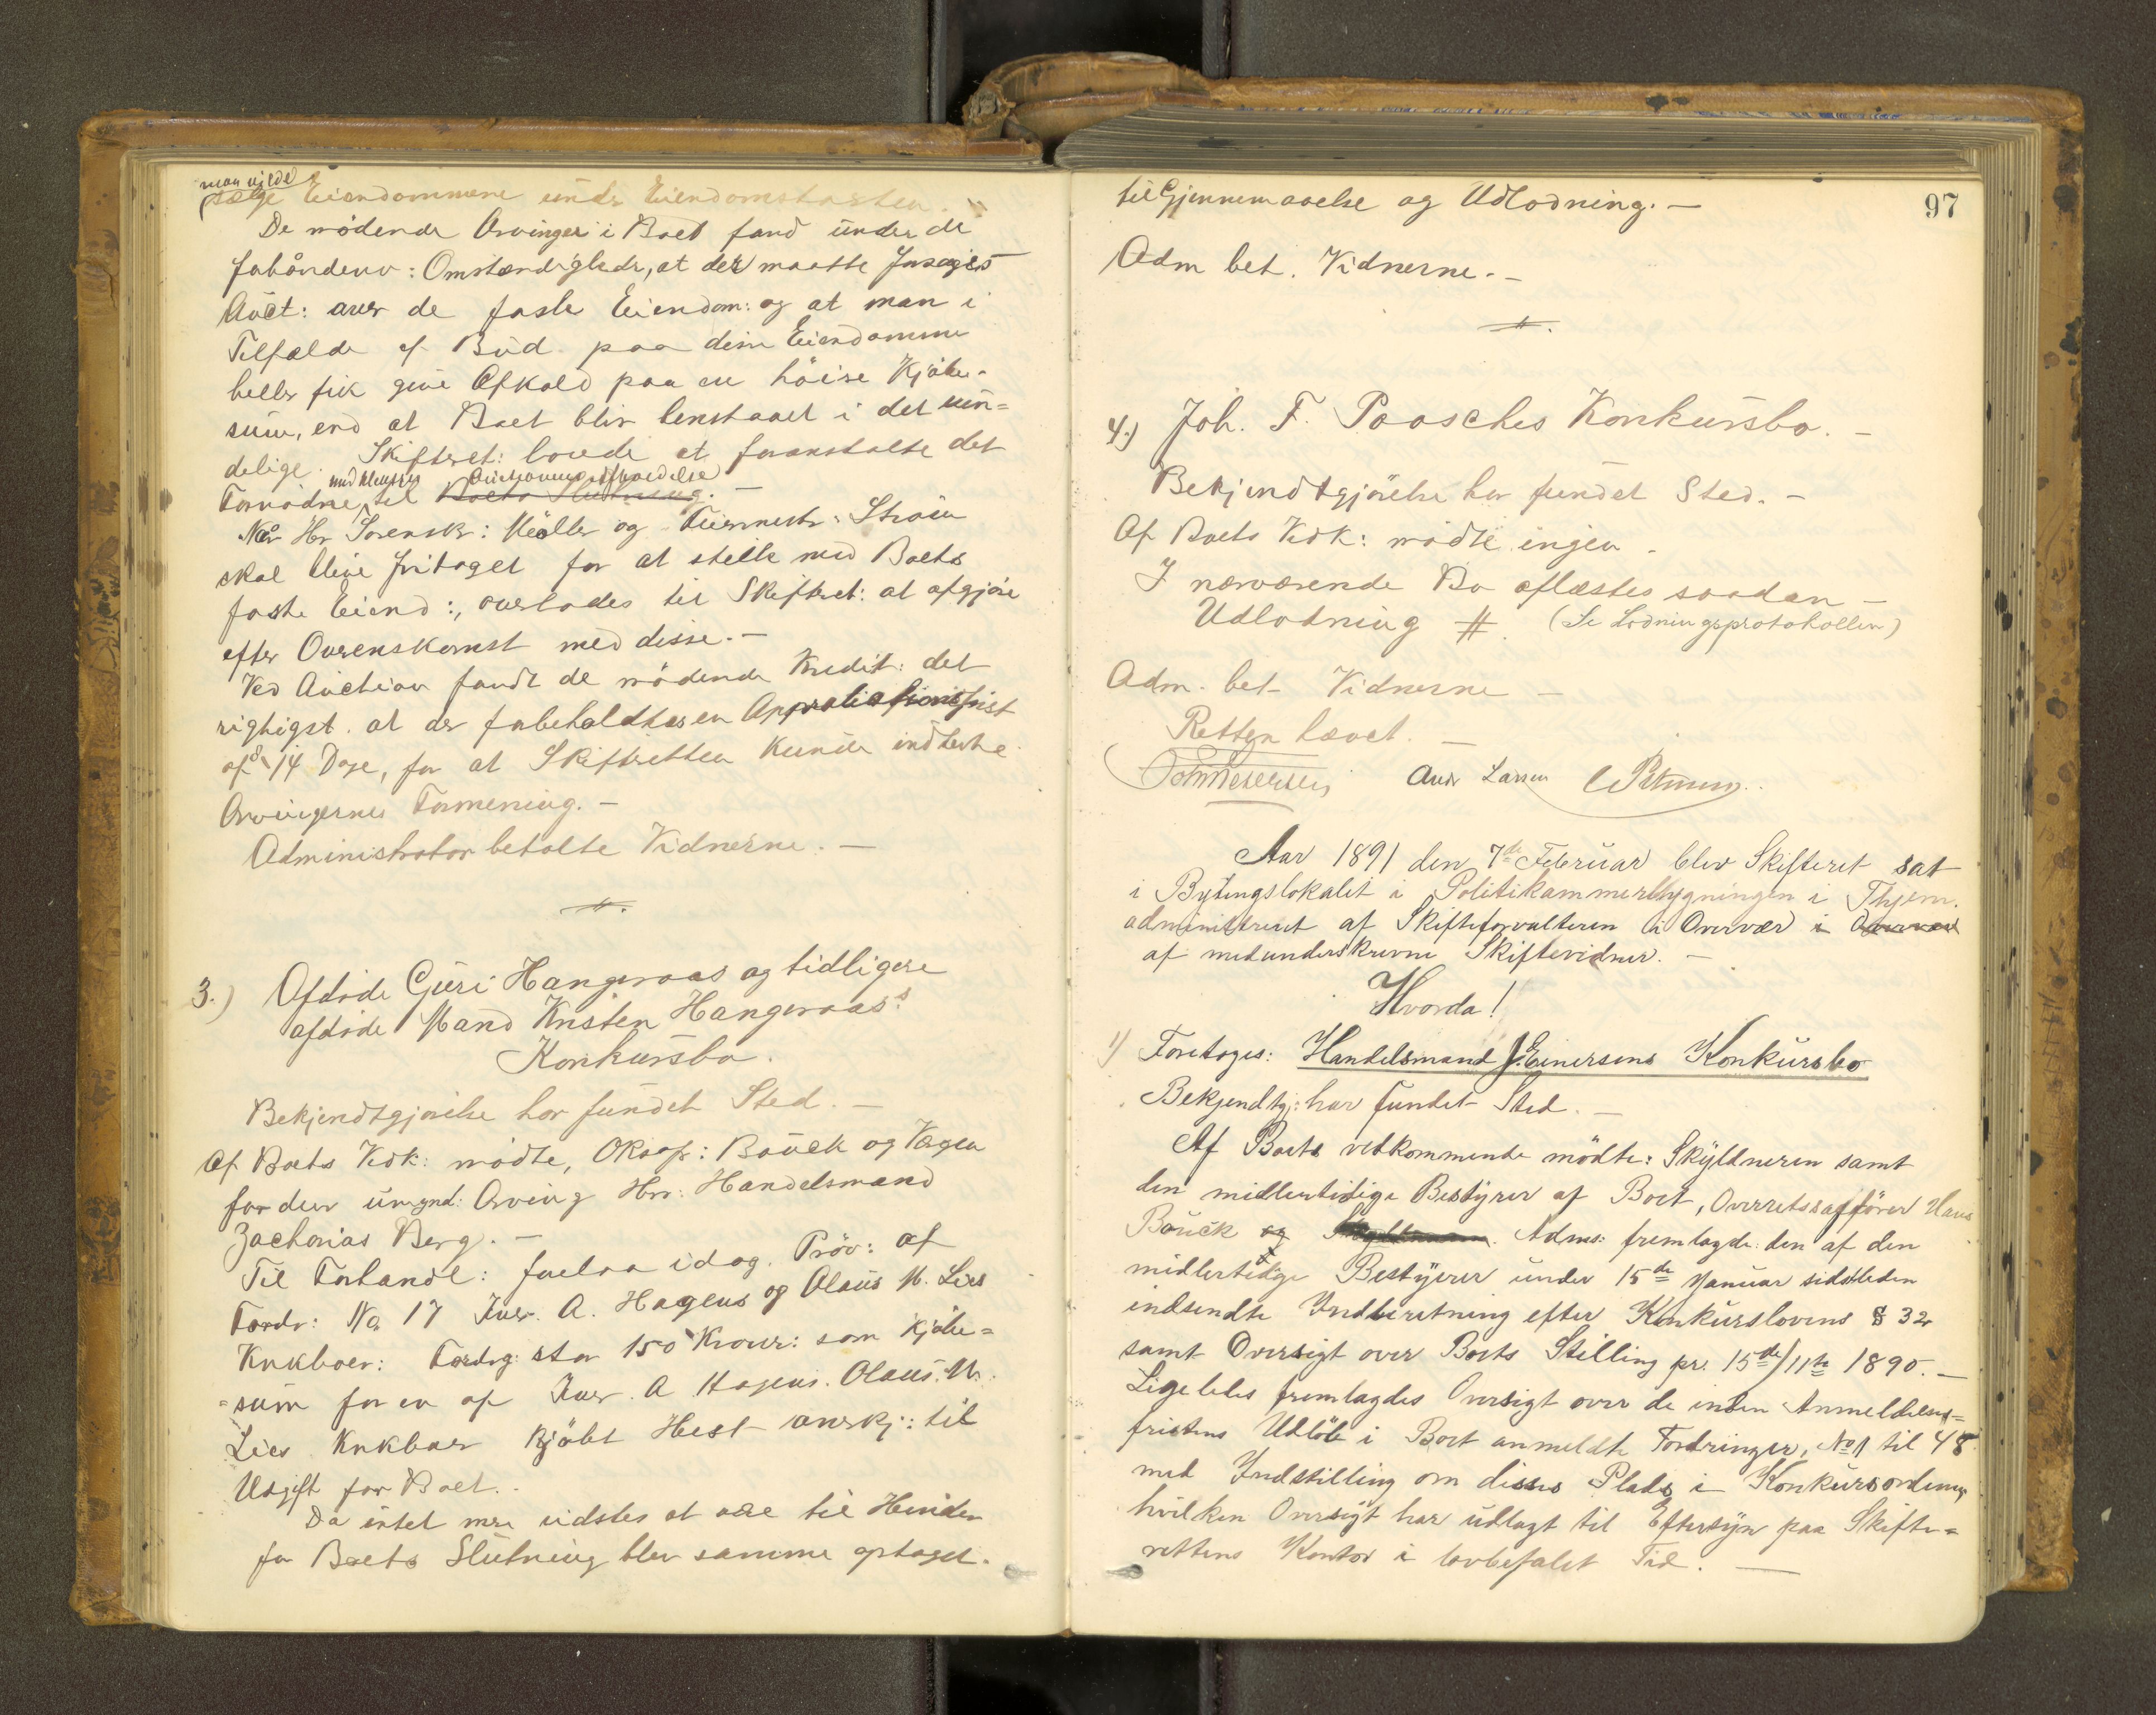 man vilde
sælge Eiendommene under Eiendomstaxten.
De mødende Arvinger i Boet fand under de
forhåndenv: Omstændigheder, at der maatte
Auct: over de faste Eiendom: og at man i
Tilfælde af Bud paa disse Eiendomme
heller fik give Afkald paa en høiere Kjøbe-
sum, end at Boet blir henstaaet i det uen-
delige. Skifteret: lovede at foranstalte det
med Hensyn Auctionens Afholdelse
Fornødne til Boets Slutning. -
Når Hr Sorenskr: Møller og Strøm
skal blive fritaget for at stelle med Boets
faste Eiend:, overlades til Skifteret: at afgjøre
efter Overenskomst med disse. -
Ved Auction fandt de mødende Kredit: det
rigtigst at der forbeholdtes en Approbationsfrist
af 8 a 14 Dage, for at Skifteretten kunde indhente
Arvingernes Formening. -
Administrator betalte Vidnerne. -
3.) Afdøde Guri Hangeraas og tidligere
afdøde Mand Kristen Hangeraas's
Konkursbo.
Bekjendtgjørelse har fundet Sted. -
Af Boets Vedk: mødte, Orsagf: Bauck og Værgen
for den umynd: Arving Hr: Handelsmand
Zacharias Berg. -
Til Forhandl: forelaa idag. Prøv: af
Fordr: No 17 Iver A. Hagens og Olaus M. Lies
Enkboer: Fordrg: stor 150 Kroner: som kjøbe=
=sum for en af Iver A Hagens. Olaus M.
Lies Enkboer kjøbt Hest anerkj: til
Udgift for Boet.
Da intet mere vidstes at være til Hinder
for Boets Slutning blev samme optaget.
97
til Gjennemgaaelse og Udlodning. -
Adm bet. Vidnerne. -
4.) Joh. F. Paasches Konkursbo. -
Bekjendtgjørelse har fundet Sted. -
Af Boets Vedk: mødte ingen.
I nærværende Bo aflæstes saadan -
Udlodning #. (Se Lodningsprotokollen)
Adm. bet. Vidnerne -
Retten hævet. -
Andr Larsen
Aar 1891 den 7de Februar blev Skifteret sat
i Bytingslokalet i Politikammerbygningen i Thjem.
administreret af Skifteforvalteren i Overvær i Overvær
af medunderskrevne Skiftevidner. -
Hvorda!
1) Foretoges: Handelsmand J. Einersens Konkursbo
Bekjendtgj: har fundet Sted. -
Af Boets vedkommende mødte: Skyldneren samt
den midlertidige Bestyrer af Boet, Overretssagfører Hans
Bauck og Skyldneren. Adms: fremlagde den af den
midlertidige Bestyrer under 15de Januar sidstleden
indsendte Indberetning efter Konkurslovens § 32
samt Oversigt over Boets Stilling pr. 15de/11te 1890. -
Ligeledes fremlagdes Oversigt over de inden Anmeldelses=
fristens Udløb i Boet anmeldte Fordringer, No 1 til 48
med Indstilling om disses Plads i Konkursordenen,
hvilken Oversigt har udlagt til Eftersyn paa Skifte=
rettens Kontor i lovbefalet Tid. -